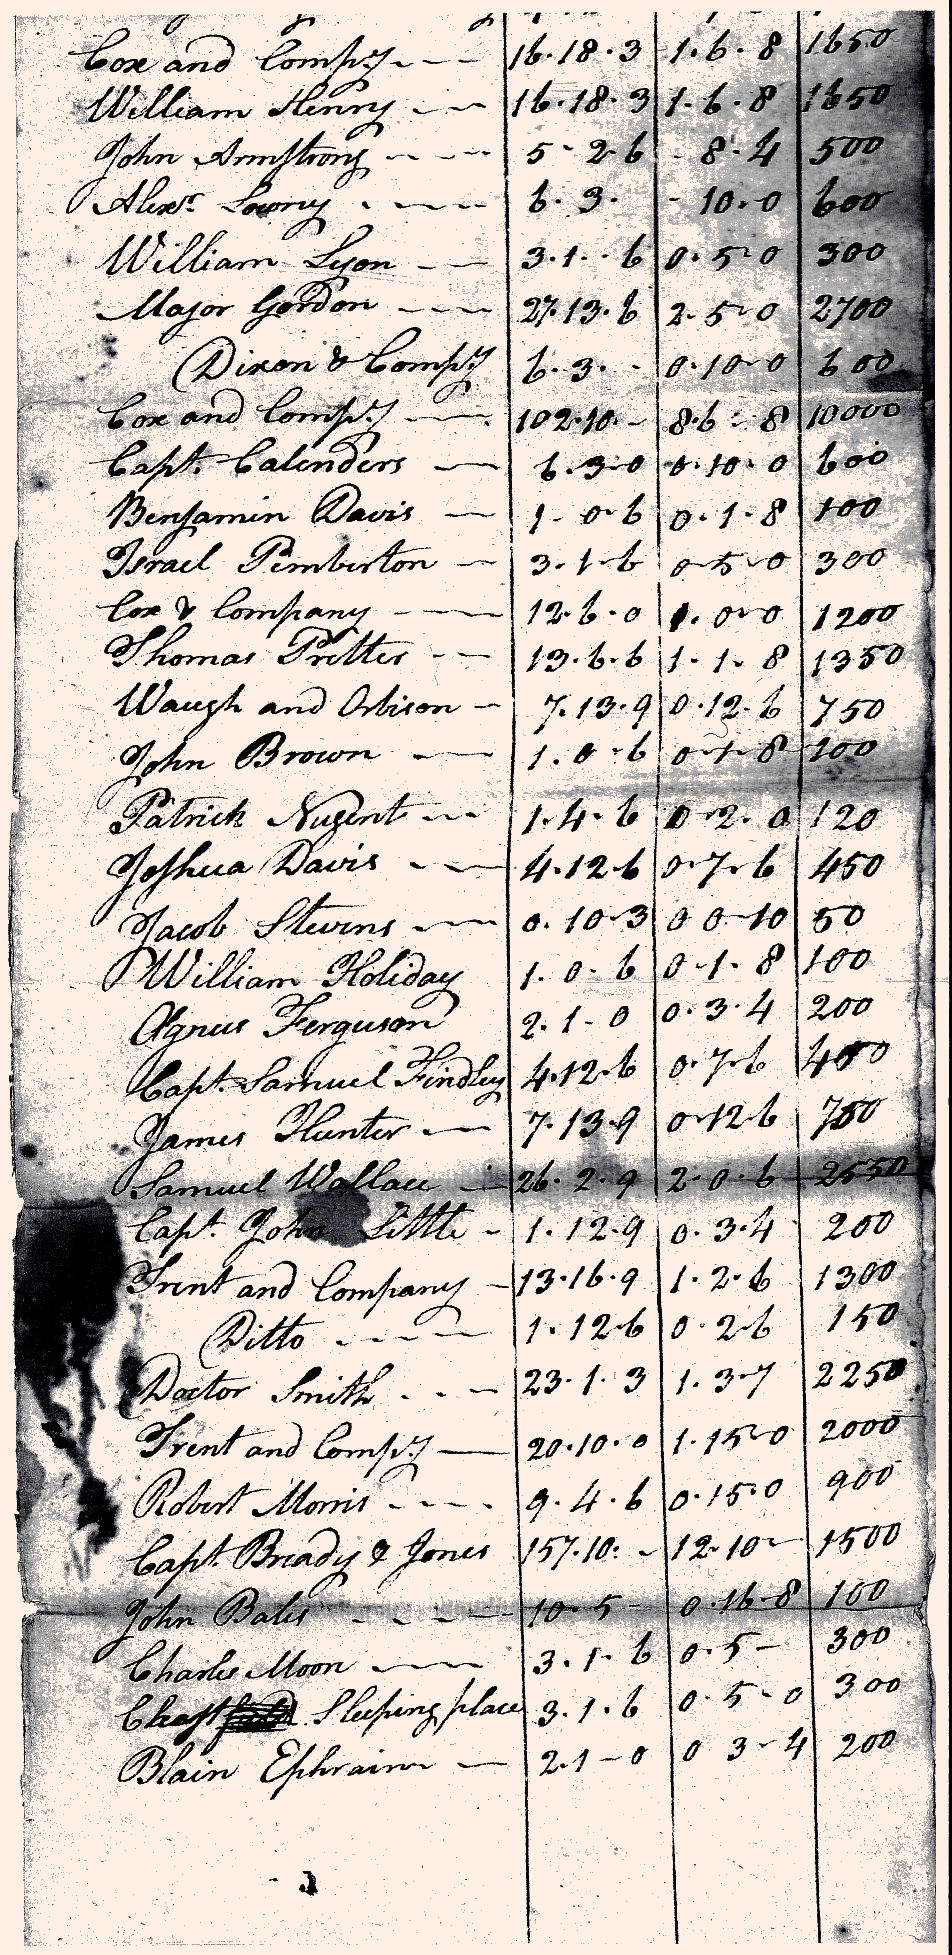 Cox and Compy. - - - 16.18.3 1.6.8 1650
William Henry - - - 16.18.3 1.6.8 1650
John Armstrong - - - - 5-2-6 - 8-4 500
Alexr. Lowry - - - - 6.3. - 10.-0 600
William Lyon - - - 3.1.-6 0.5-0 300
Major Gordon - - - 27.13.6 2.5-0 2700
Dixon & Compy 6.3.- 0.10-0 600
Cox and Compy. - - - 102.10.- 8.6-8 10000
Capt. Calenders - - 6.3-0 0.10.0 600
Benjamin Davis - - 1-0-6 0.1-8 100
Israel Pemberton - - 3.1-6 0-5-0 300
Cox & Company - - - 12.6-0 1.0-0 1200
Thomas Pretter - - - 13.6.6 1.1.8 1350
Waugh and Orbison - 7.13.9 0.12.6 750
John Brown - - 1.0-6 0-1-8 100
Patrick Nugent - - - 1.4.6 0-2.0 120
Joshua Davis - - - 4.12-6 0-7-6 450
Jacob Stevens - - - 0.10-3 0 0-10 50
William Holiday 1.0.6 0-1.8 100
Agnus Ferguson 2.1-0 0.3.4 200
Capt. Samuel Findley 4.12-6 0.7-6
James Hunter - - 7.13.9 0-12-6 750
Samuel Wallace - 26.2.9 2-0.6 2550
Capt. John Little - 1.12.9 0.3.4 200
Trent and Company - 13.16.9 1.2.6 1300
Ditto - - - - 1.12-6 0.2-6 150
Doctor Smith - - - 23.1.3 1.3-7 2250
Trent and Compy - 20.10.0 1.15-0 2000
Robert Morris - - - - 9.4.6 0.15.0 900
Capt. Brady & Jones 157.10.- 12-10- 1500
John Bales - - - - 10-5- 0.16-8 100
Charles Moon - - - 3.1-6 0.5- 300
Sleeping place 3.1.6 0.5-0 300
Blain Ephraim - 2.1-0 0 3-4 200